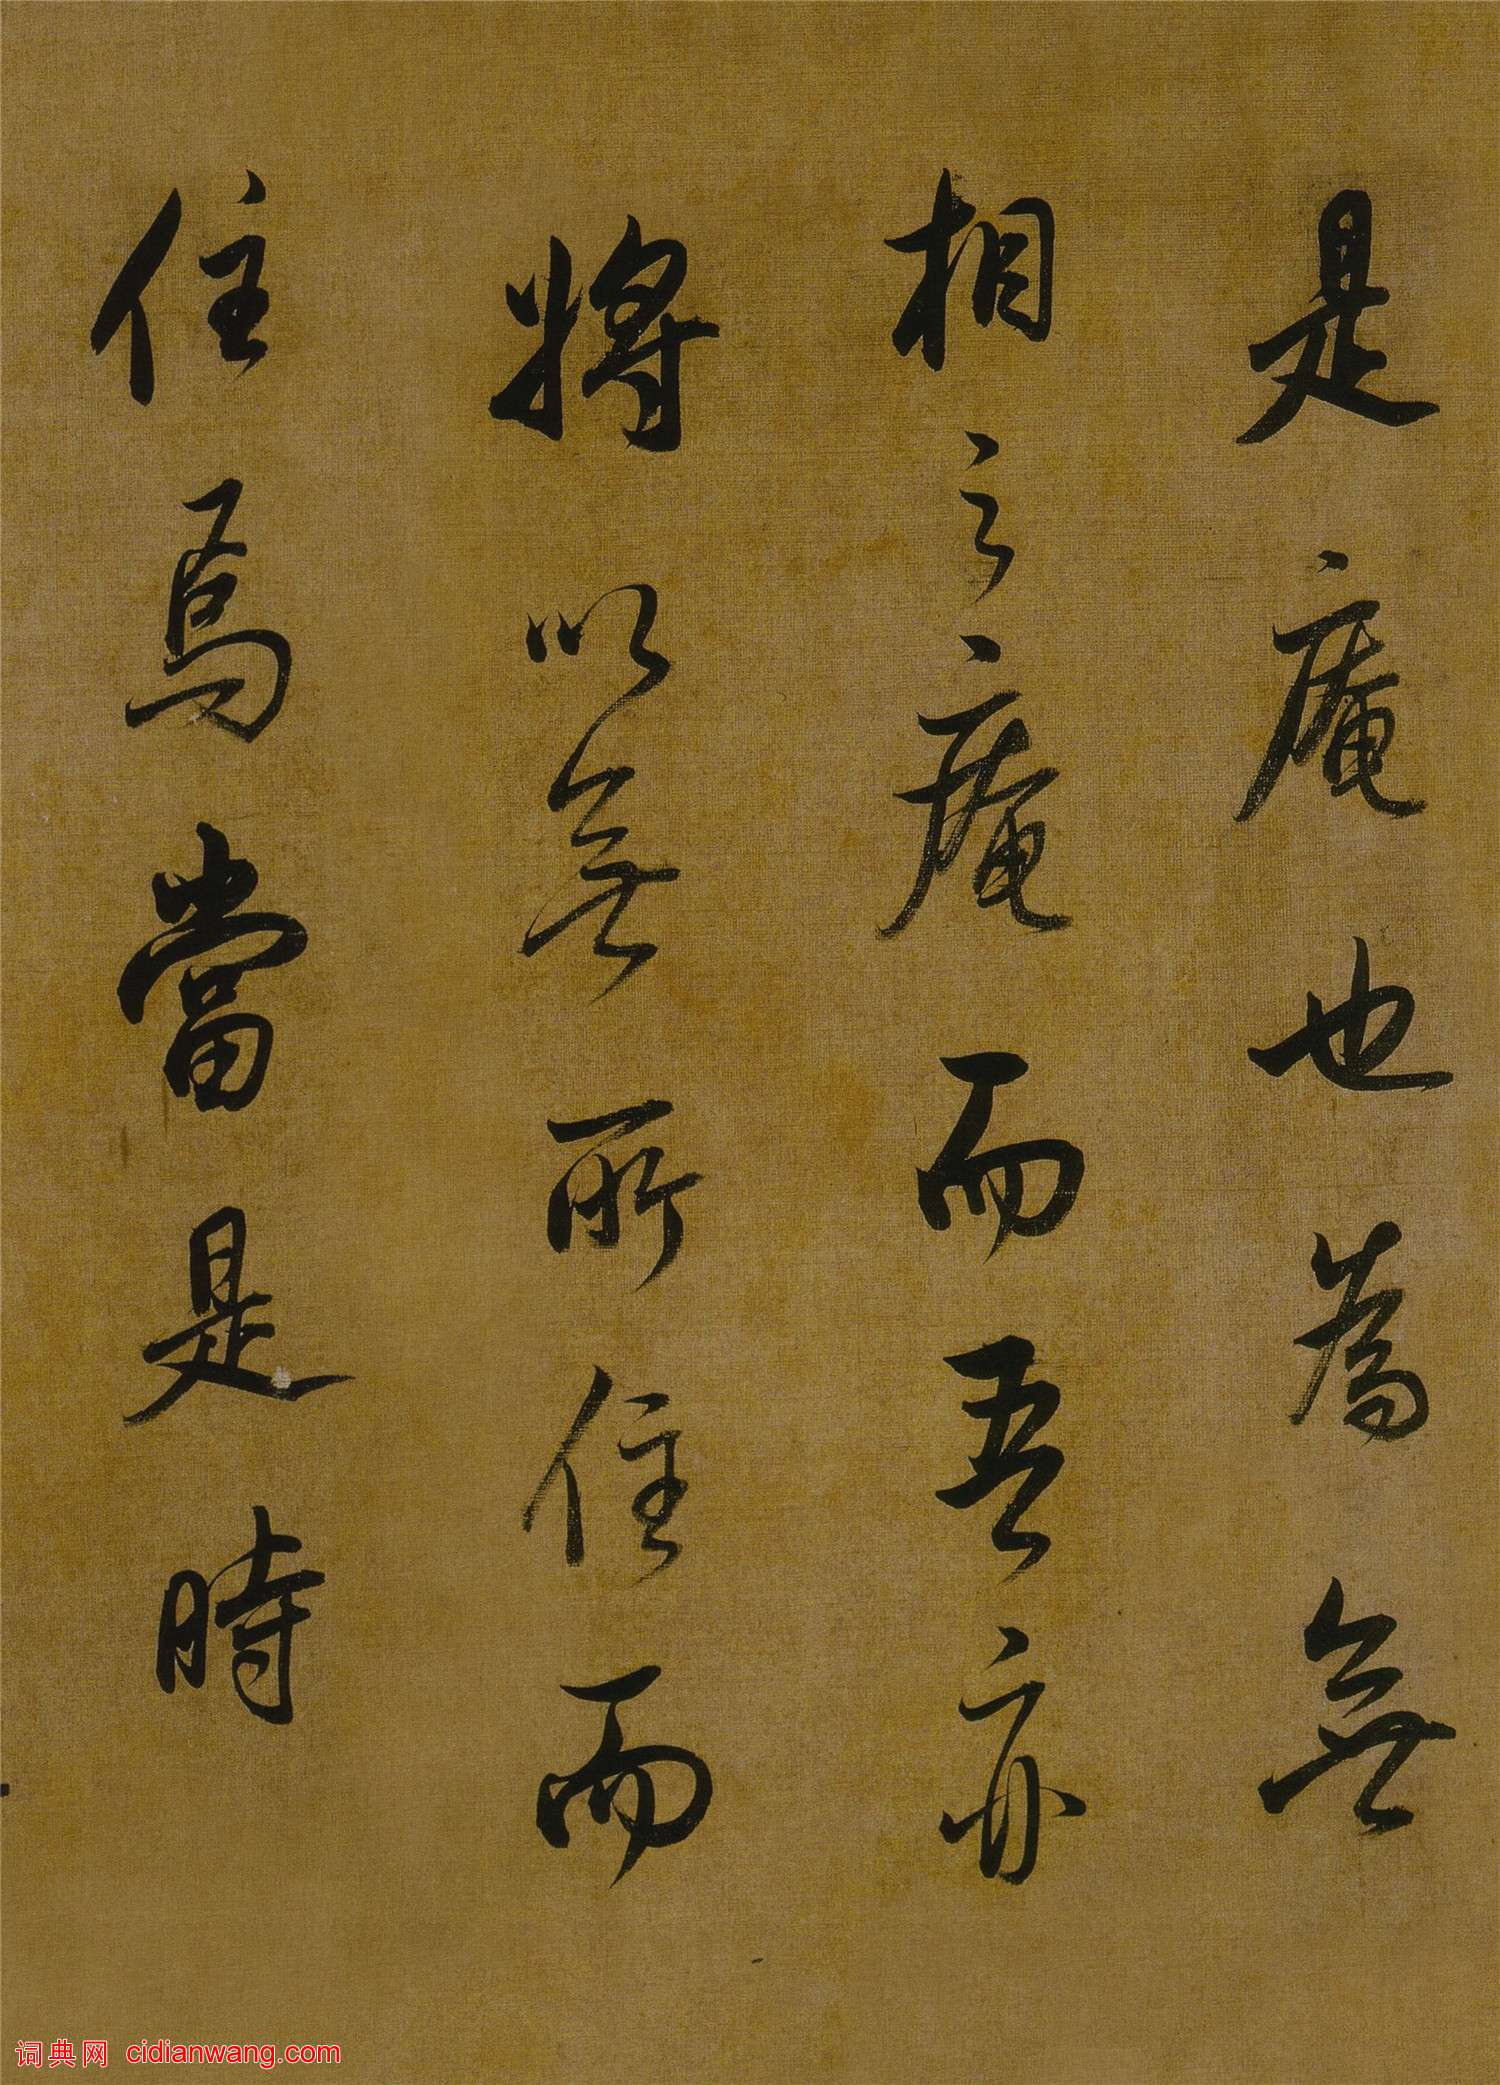 是庵也為無
相之庵而吾亦
將以無所住而
住焉當是時
词典网 cidianwang.com